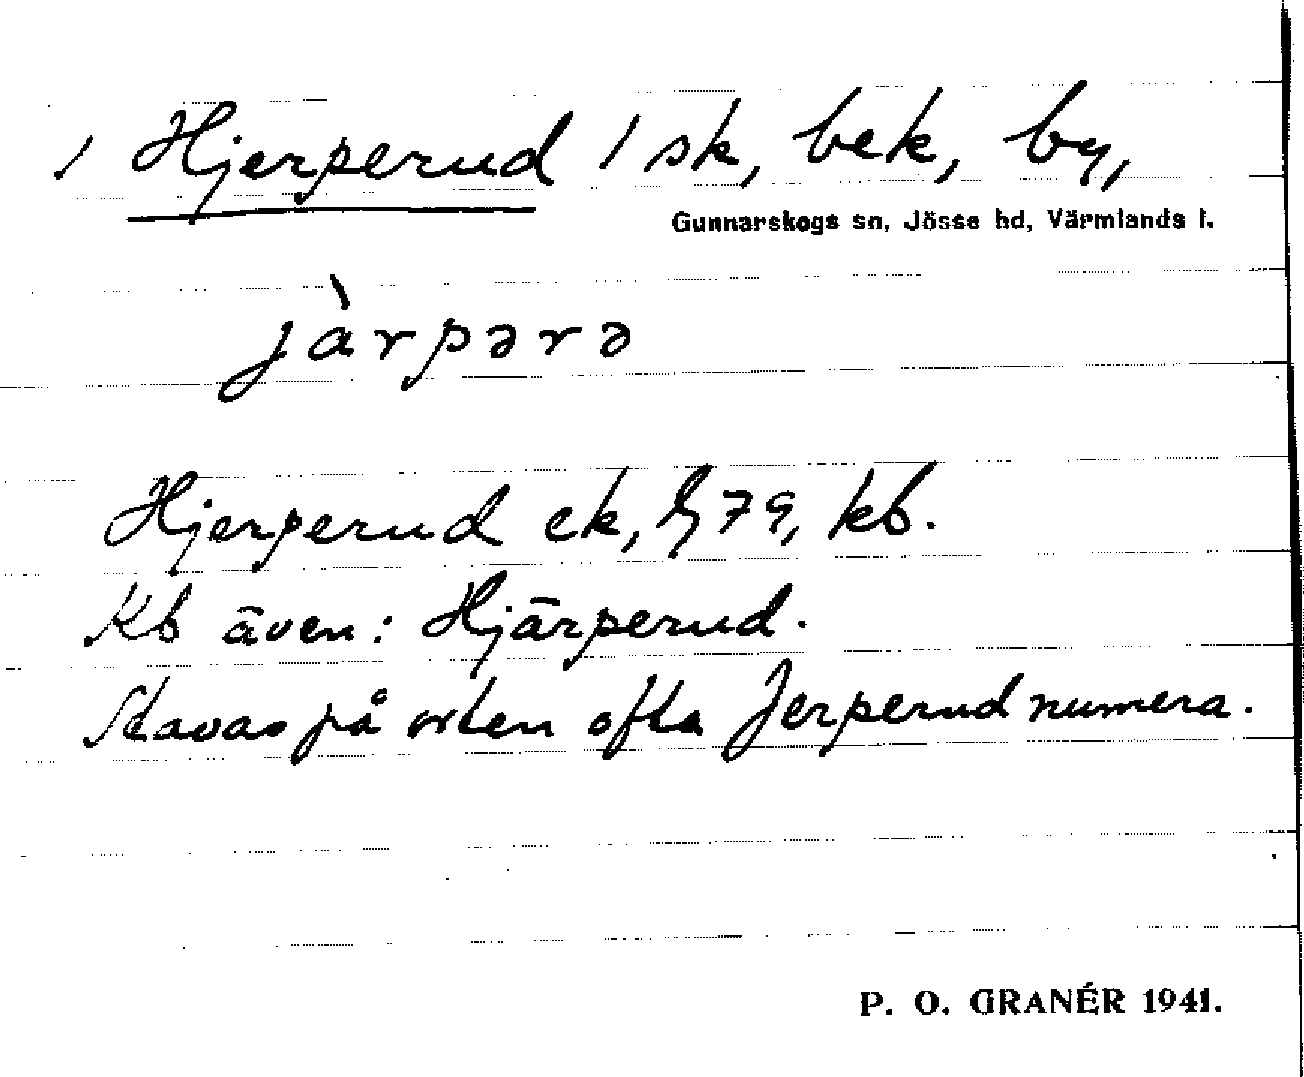 / Hjerperud / sk, bek, by,
Gunnarskogs sn, Jösse hd, Värmlands l.
jàrpərə
Hjerperud ek, G79, kb.
Kb även: Hjärperud.
Stavas på orten ofta Jerperud numera.
P. O. GRANÉR 1941.